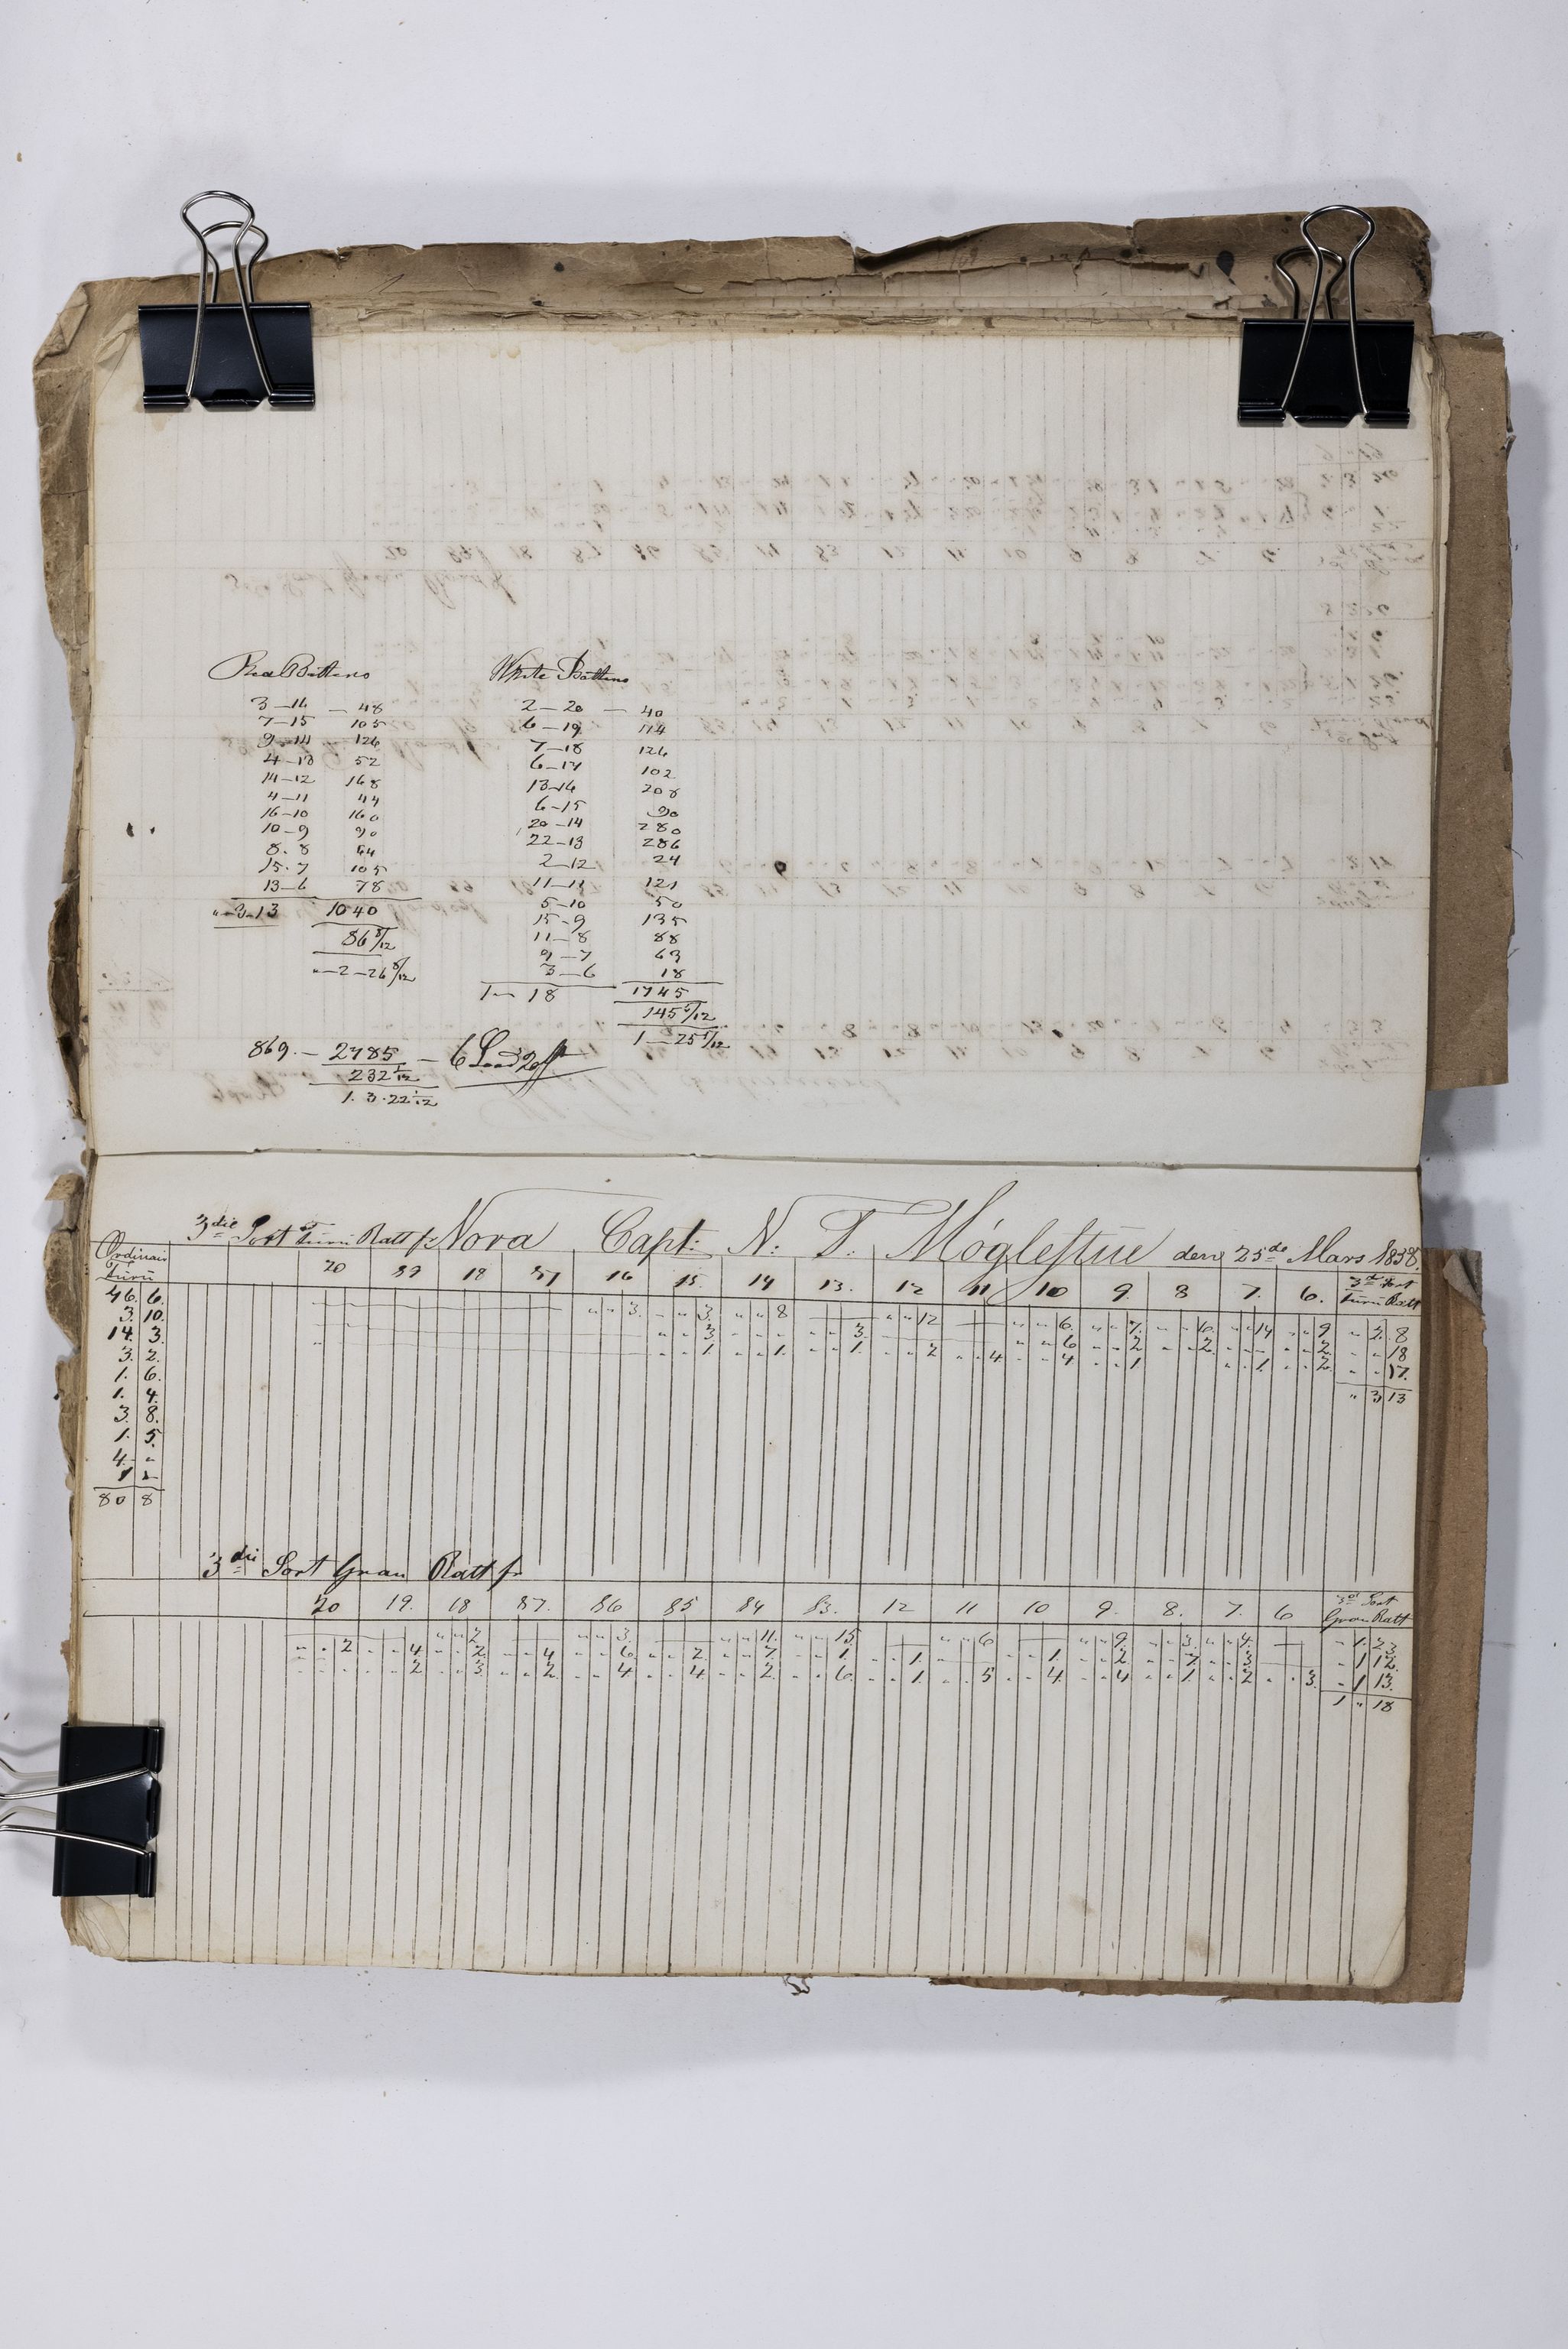 Red Battens
3–16 – 48
7–15 105
9–14 126
4–13 52
14–12 168
4–11 44
16–10 160
10–9 90
8. 8 64
15. 7 105
13–6 78
"–3–13 1040
86 8/12
"–2–26 8/12
White Battens
2–20 – 40
6–19 114
7–18 126
6–17 102
13–16 208
6–15 90
20–14 280
22–13 286
2–12 24
11–11 121
5–10 50
15–9 135
11–8 88
9–7 63
3–6 18
1–"18 1745
145 5/12
1–25 5/12
869. – 2785 – 6 Load
232 1/12
1. 3. 22 1/12
3die Sort Furu Batt fr Nova Capt: N. T. Mógleſtue den 25de Mars 1838.
Ordinair Furu
46. 6.
3. 10.
14. 3.
3. 2.
1. 6.
1. 4.
3. 8.
1. 5.
4. "
1 2
80 8
20 19 18 17 16 15. 14 13. 12 11 10 9. 8 7. 6. 3die Sort Furu Batt
" " 3. " " 3. " " 8 " " 12 " " 6. " " 7. " " 6. " " 14 " " 9 " 2. 8
" " 3 " " 3. " " 6 " " 2 " " 2. " " 2. " " 18
" " 1 " " 1. " " 1. " " 2 " " 4 " " 4 " " 1. " " 1. " " 2. " " 17.
" 3 13
3die Sort Gran Batt fr
20 19. 18 17. 16 15 14 13. 12 11 10 9. 8. 7. 6 3die Sort Gran Batt
" " 2 " " 3. " " 11. " " 15. " " 6 " " 9. " " 3. " " 4. " 1. 23
" " 2 " " 4. " " 2. " " 4 " " 6. " " 2. " " 7. " " 1. " " 1. " " 1. " " 2 " " 7. " " 3 " 1 12.
" " 2 " " 3. " " 2. " " 4 " " 4. " " 2. " " 6. " " 1. " " 5 " " 4. " " 4 " " 1. " " 2 " " 3. " 1 13.
1 " 18